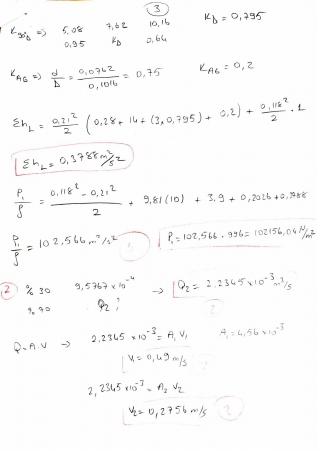 3
K90°D => 5,08 7,62 10,16 KD = 0,795
0,95 KD 0,64
KAG => d/D = 0,0762/0,1016 = 0,75 KAG = 0,2
ΣhL = 0,21²/2 (0,28 + 14 + (3,0,795) + 0,2) + 0,118²/2 . 1
ΣhL = 0,3788 m²/s²
P1/ρ = 0,118² - 0,21²/2 + 9,81 (10) + 3,9 + 0,2026 + 0,3788
P1/ρ = 102,566 m²/s² P1 = 102,566 . 996 = 102156,04 N/m²
2 % 30 9,5767 x 10⁻⁴ → Q2 = 2,2345 x 10⁻³ m³/s
% 70 Q2 ?
Q = A.V → 2,2345 x 10⁻³ = A1 V1 A1 = 4,56 x 10⁻³
V1 = 0,49 m/s
2,2345 x 10⁻³ = A2 V2
V2 = 0,2756 m/s